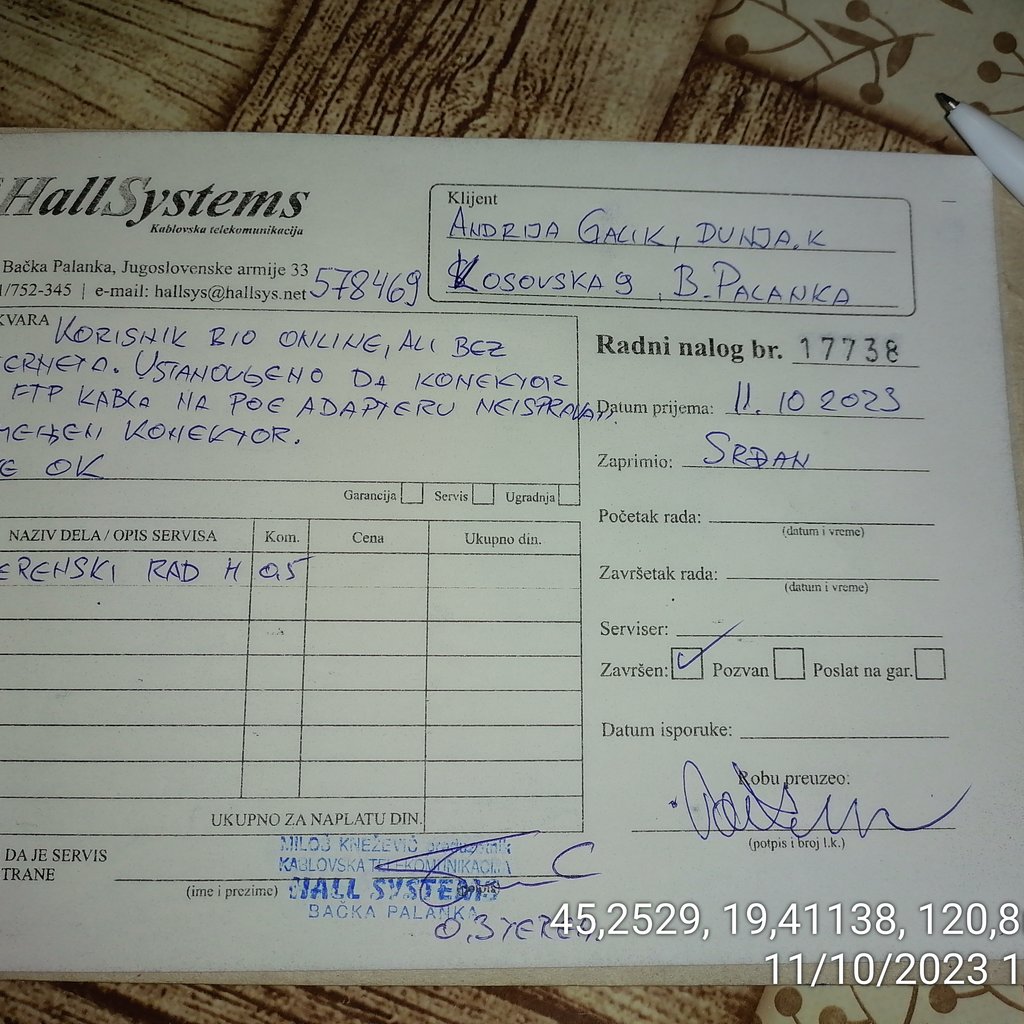 HallSystems
Kablovska telekomunikacija
Bačka Palanka, Jugoslovenske armije 33
/752-345 | e-mail: hallsys@hallsys.net 578469
Klijent
ANDRIJA GALIK, DUNJA.K
KOSOVSKA 9, B.PALANKA
KVARA KORISNIK BIO ONLINE, ALI BEZ
ERNETA. USTANOVLJENO DA KONEKTOR
FTP KABLA NA POE ADAPTERU NEISPRAVAN.
MENJEN KONEKTOR.
E OK
Garancija Servis Ugradnja
Radni nalog br. 17738
Datum prijema: 11. 10 2023
Zaprimio: SRĐAN
Početak rada:
(datum i vreme)
Završetak rada:
(datum i vreme)
Serviser:
Završen: Pozvan Poslat na gar.
Datum isporuke:
Robu preuzeo:
(potpis i broj l.k.)
NAZIV DELA / OPIS SERVISA Kom. Cena Ukupno din.
ERENSKI RAD H 0,5
UKUPNO ZA NAPLATU DIN.
DA JE SERVIS
TRANE
(ime i prezime)
MILOŠ KNEŽEVIĆ preduzetnik
KABLOVSKA TELEKOMUNIKACIJA
HALL SYSTEMS
BAČKA PALANKA
45,2529, 19,41138, 120,8
11/10/2023 1